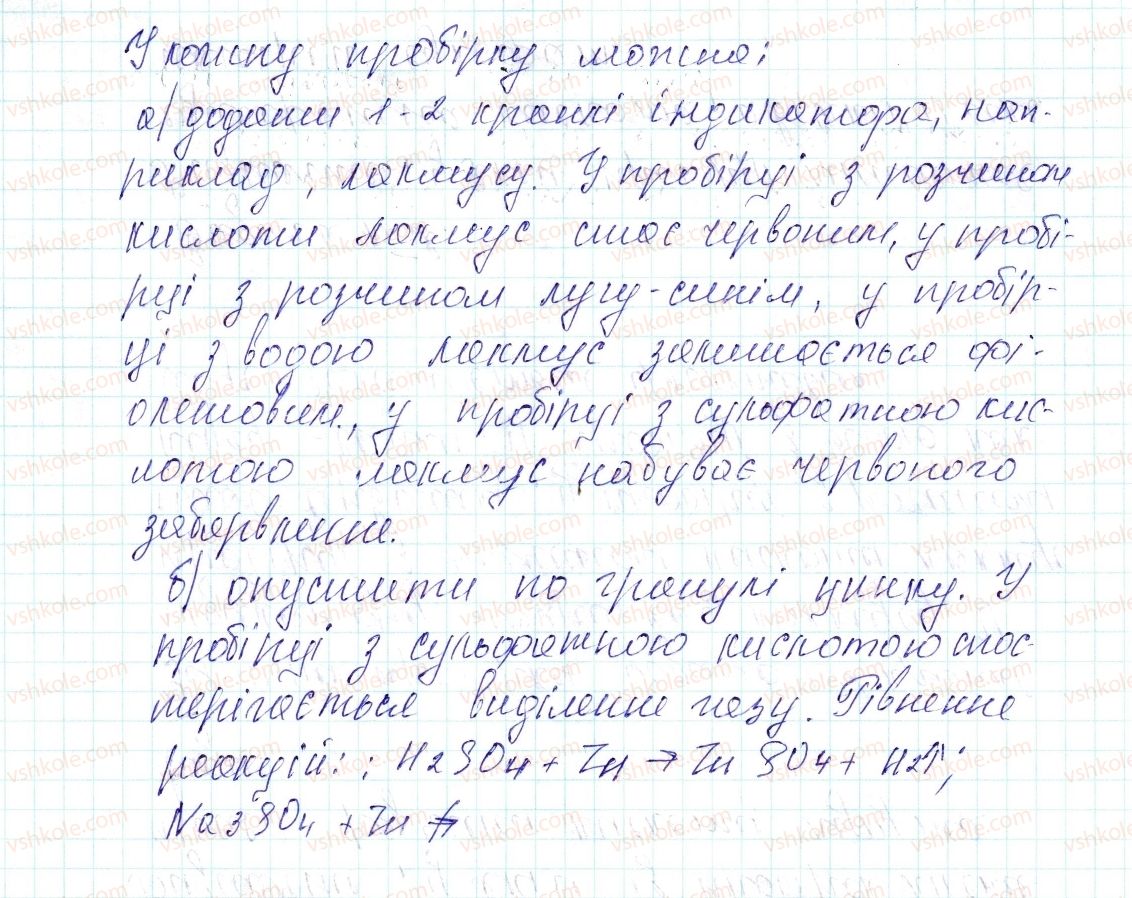 У кожну пробірку можна:
а) додати 1-2 краплі індикатора, нап-
риклад, лакмусу. У пробірці з розчином
кислоти лакмус стає червоним, у пробі-
рці з розчином лугу-синім, у пробір-
ці з водою лакмус залишається фі-
олетовим, у пробірці з сульфатною кис-
лотою лакмус набуває червоного
забарвлення.
б) опустити по гранулі цинку. У
пробірці з сульфатною кислотою спос-
терігається виділення газу. Рівняння
реакцій: ; H2SO4 + Zn → Zn SO4 + H2↑;
Na3SO4 + Zn ↛